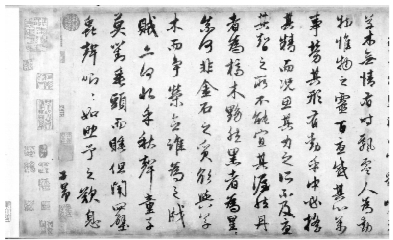 草木無情有時飄零人為動
物惟物之靈百憂感其心萬
事勞其形有動乎中必搖
其精而況思其力之所不及憂
其智之所不能宜其渥然丹
者為槁木黟然黑者為星
奈何非金石之質欲與草
木而爭榮念誰為之戕
賊亦何恨乎秋聲童子
莫對垂頭而睡但聞四壁
蟲聲唧〻如助予之歎息
子昂